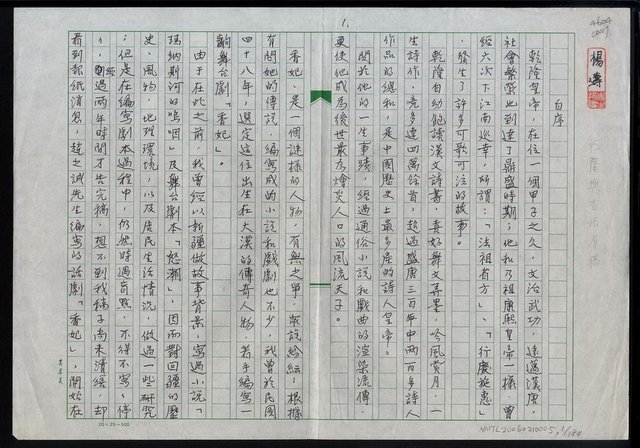 自序
乾隆皇帝，在位一個甲子之久，文治武功，遠邁漢唐，
社會繁榮也到達了鼎盛時期；他和乃祖康熙皇帝一樣，曾
經六次下江南巡幸，所謂：「法祖省方」、「行慶施惠」
，發生了許多可歌可泣的故事。
乾隆自幼飽讀漢文詩書，喜好舞文弄墨，吟風賞月，一
生詩作，竟多達四萬餘首，超過盛唐三百年中兩百多詩人
作品的總和，是中國歷史上最多產的詩人皇帝。
關於他的一生事蹟，經過通俗小說和戲曲的渲染流傳
更使他成為後世最為燴炙人口的風流天子。
香妃，是一個謎樣的人物，有無之爭，眾說紛紜，根據
有關她的傳說，編寫成的小說和戲劇也不少，我曾於民國
四十八年，選定這位出生在大漠的傳奇人物，著手編寫一
齣舞台劇「香妃」。
由于在此之前，我曾經以新疆做故事背景，寫過小說「
瑪納斯河的嗚咽」及舞台劇本「怒潮」，因而對回疆的歷
史、風物、地理環境，以及居民生活情況，做過一些研究
；但是在編寫劇本過程中，仍然時遇盲點，不得不寫寫停
停，經過兩年時間才告完稿，想不到我稿子尚未清繕，卻
看到報紙消息，趙之誠先生編寫的話劇「香妃」，開始在
1.
楊濤
20×25=500
NMTL20060210005, 1/184